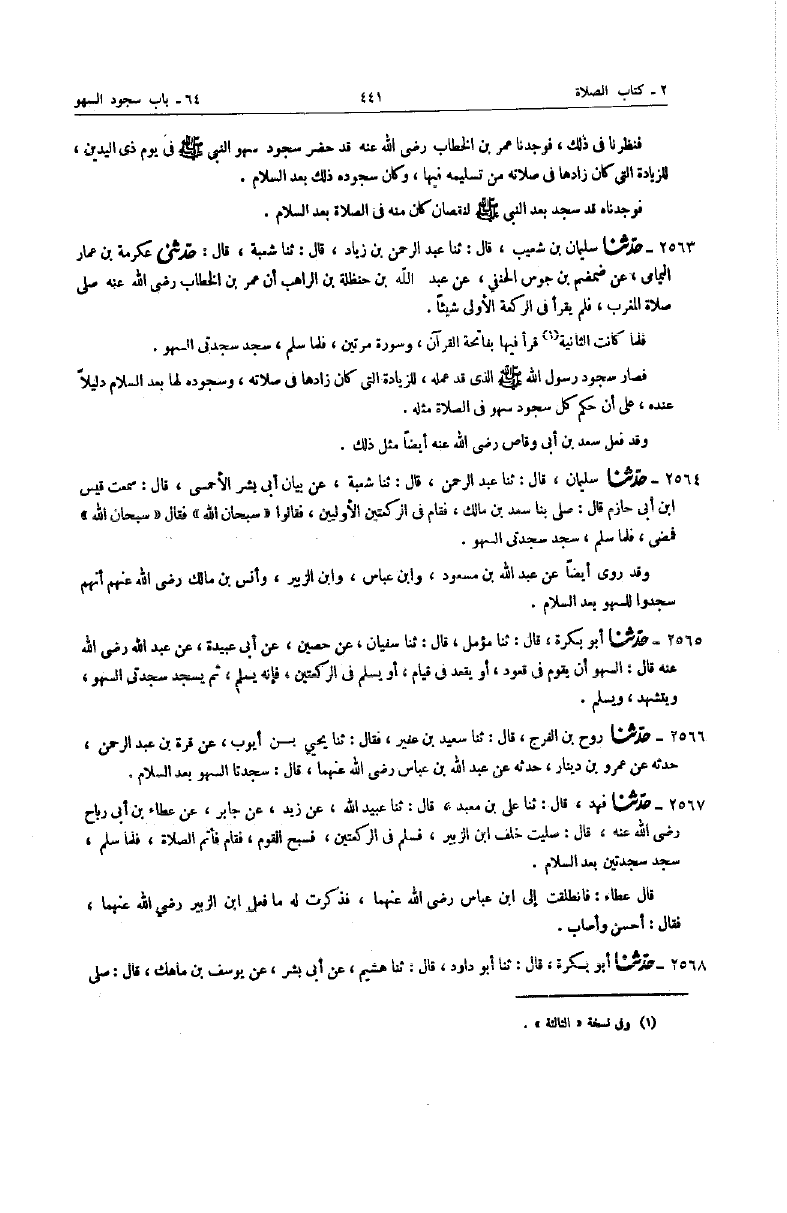 ٢ - كتاب الصلاة ٤٤١ ٦٤ - باب سجود السهو
فنظرنا فى ذلك ، فوجدنا عمر بن الخطاب رضى الله عنه قد حضر سجود سهو النبي ﷺ فى يوم ذى اليدين ،
للزيادة التى كان زادها فى صلاته من تسليمه فيها ، وكان سجوده ذلك بعد السلام .
فوجدناه قد سجد بعد النبي ﷺ لنقصان كان منه فى الصلاة بعد السلام .
٢٥٦٣ - حدثنا سليمان بن شعيب ، قال : ثنا عبد الرحمن بن زياد ، قال : ثنا شعبة ، قال : حدثنى عكرمة بن عمار
اليمامى ، عن ضمضم بن جوس الحنفي ، عن عبد الله بن حنظلة بن الراهب أن عمر بن الخطاب رضى الله عنه صلى
صلاة المغرب ، فلم يقرأ فى الركعة الأولى شيئاً .
فلما كانت الثانية(١) قرأ فيها بفاتحة القرآن ، وسورة مرتين ، فلما سلم ، سجد سجدتى السهو .
فصار سجود رسول الله ﷺ الذى قد عمله ، للزيادة التى كان زادها فى صلاته ، وسجوده لها بعد السلام دليلاً
عنده ، على أن حكم كل سجود سهو فى الصلاة مثله .
وقد فعل سعد بن أبى وقاص رضى الله عنه أيضاً مثل ذلك .
٢٥٦٤ - حدثنا سليمان ، قال : ثنا عبد الرحمن ، قال : ثنا شعبة ، عن بيان أبى بشر الأحمسى ، قال : سمعت قيس
ابن أبى حازم قال : صلى بنا سعد بن مالك ، فقام فى الركعتين الأوليين ، فقالوا « سبحان الله » فقال « سبحان الله »
فمضى ، فلما سلم ، سجد سجدتى السهو .
وقد روى أيضاً عن عبد الله بن مسعود ، وابن عباس ، وابن الزبير ، وأنس بن مالك رضى الله عنهم أنهم
سجدوا للسهو بعد السلام .
٢٥٦٥ - حدثنا أبو بكرة ، قال : ثنا مؤمل ، قال : ثنا سفيان ، عن حصين ، عن أبى عبيدة ، عن عبد الله رضى الله
عنه قال : السهو أن يقوم فى قعود ، أو يقعد فى قيام ، أو يسلم فى الركعتين ، فإنه يسلم ، ثم يسجد سجدتى السهو ،
ويتشهد ، ويسلم .
٢٥٦٦ - حدثنا روح بن الفرج ، قال : ثنا سعيد بن عفير ، فقال : ثنا يحيى بن أيوب ، عن قرة بن عبد الرحمن ،
حدثه عن عمرو بن دينار ، حدثه عن عبد الله بن عباس رضى الله عنهما ، قال : سجدتا السهو بعد السلام .
٢٥٦٧ - حدثنا فهد ، قال : ثنا على بن معبد ، قال : ثنا عبيد الله ، عن زيد ، عن جابر ، عن عطاء بن أبى رباح
رضى الله عنه ، قال : صليت خلف ابن الزبير ، فسلم فى الركعتين ، فسبح القوم ، فقام فأتم الصلاة ، فلما سلم ،
سجد سجدتين بعد السلام .
قال عطاء : فانطلقت إلى ابن عباس رضى الله عنهما ، فذكرت له ما فعل ابن الزبير رضي الله عنهما ،
فقال : أحسن وأصاب .
٢٥٦٨ - حدثنا أبو بكرة ، قال : ثنا أبو داود ، قال : ثنا هشيم ، عن أبى بشر ، عن يوسف بن ماهك ، قال : صلى
(١) وفى نسخة « الثالثة » .